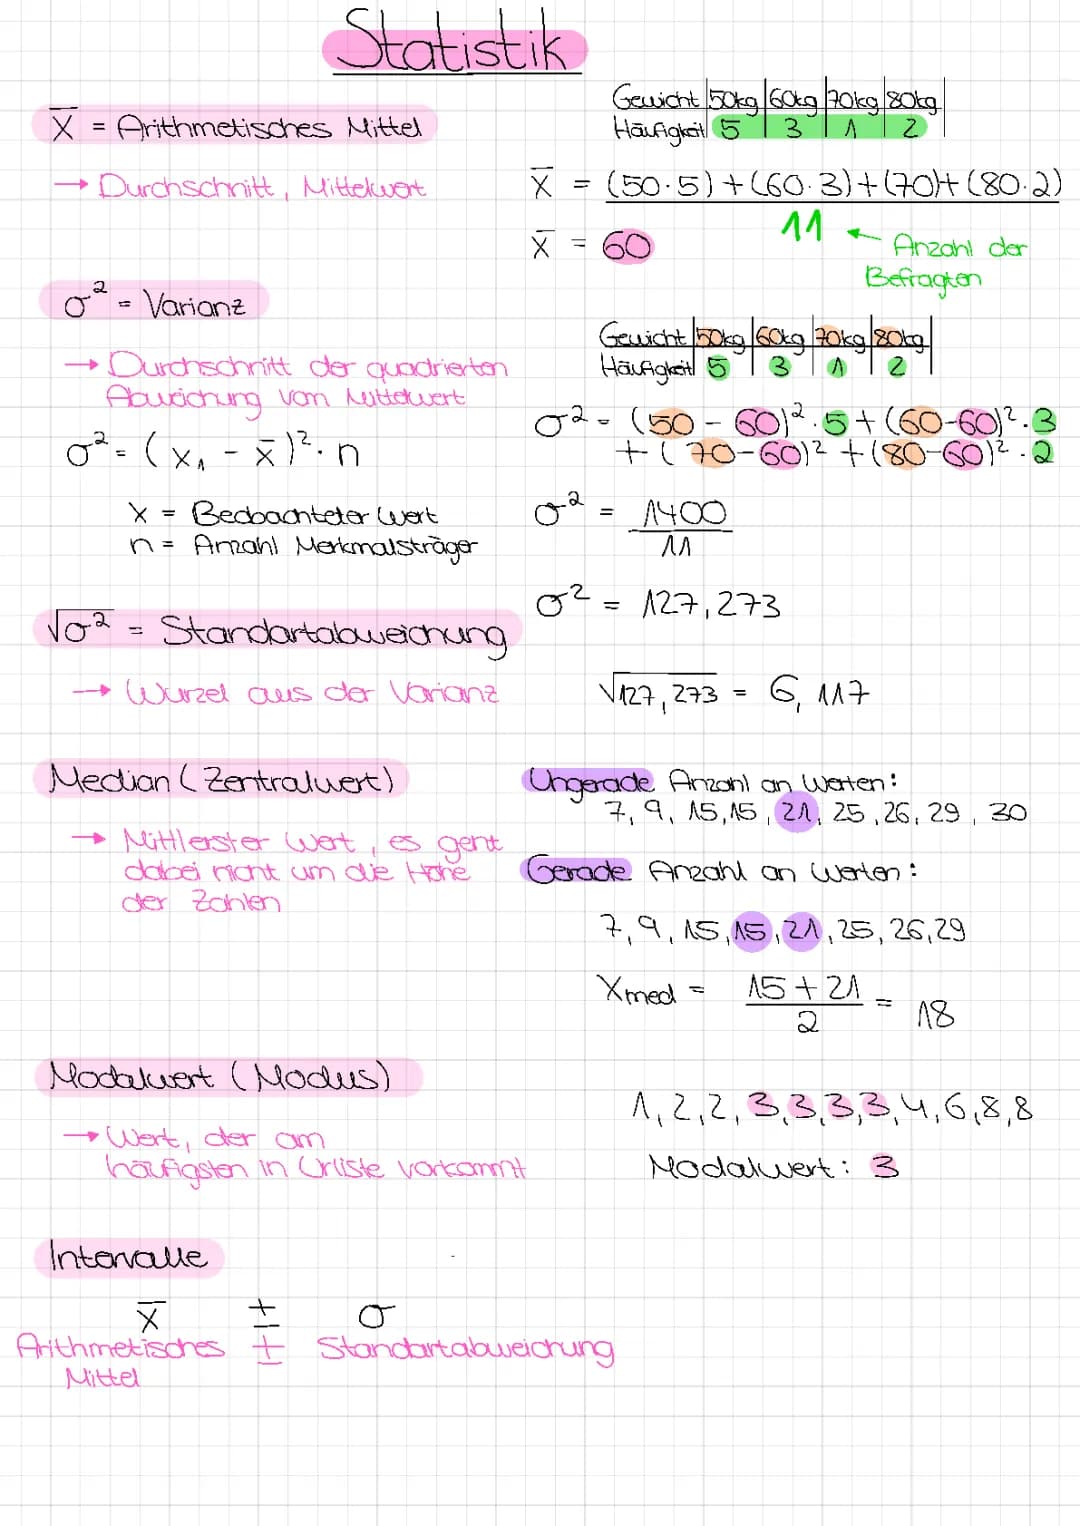 Statistik
Gewicht 50kg 60kg 70kg 80kg
Häufigkeit 5 3 1 2
x̄ = Arithmetisches Mittel
→ Durchschnitt, Mittelwert
x̄ = (50·5)+(60·3)+(70)+(80·2)
11 ← Anzahl der
Befragten
x̄ = 60
σ² = Varianz
→ Durchschnitt der quadrierten
Abweichung vom Mittelwert
σ² = (x₁ - x̄)²·n
x = Beobachteter Wert
n = Anzahl Merkmalsträger
Gewicht 50kg 60kg 70kg 80kg
Häufigkeit 5 3 1 2
σ² = (50 - 60)²·5+(60-60)²·3
+(70-60)²+(80-60)²·2
σ² = 1400
11
σ² = 127,273
√σ² = Standartabweichung
→ Wurzel aus der Varianz
√127,273 = 6,117
Median (Zentralwert)
→ Mittlerster Wert, es geht
dabei nicht um die Höhe
der Zahlen
Ungerade Anzahl an Werten:
7, 9, 15, 15, 21, 25, 26, 29, 30
Gerade Anzahl an Werten:
7, 9, 15, 15, 21, 25, 26, 29
Xmed = 15+21 = 18
2
Modalwert (Modus)
→ Wert, der am
häufigsten in Urliste vorkommt
1, 2, 2, 3, 3, 3, 3, 4, 6, 8, 8
Modalwert: 3
Intervalle
x̄ ± σ
Arithmetisches ± Standartabweichung
Mittel